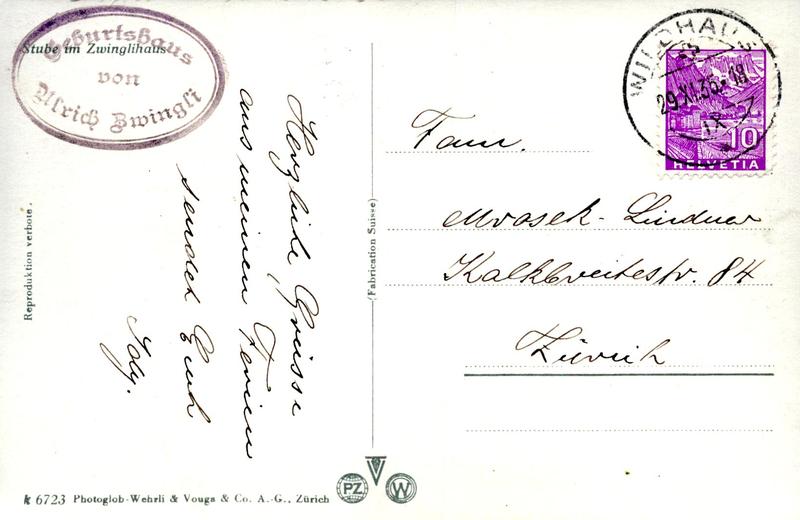 Stube im Zwinglihaus
Geburtshaus
von
Ulrich Zwingli
Herzliche Grüsse
aus meinen Ferien
sendet Euch
Reproduktion verbote.
(Fabrication Suisse)
WILDHAUS
29.XI.35-18
IX
10
HELVETIA
Fam.
Mrosek-Lindner
Kalkbreitestr. 84
Zürich
k 6723 Photoglob-Wehrli & Vouga & Co. A.-G., Zürich
PZ
W